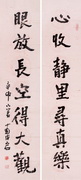 心收静里尋真樂
眼放長空得大觀